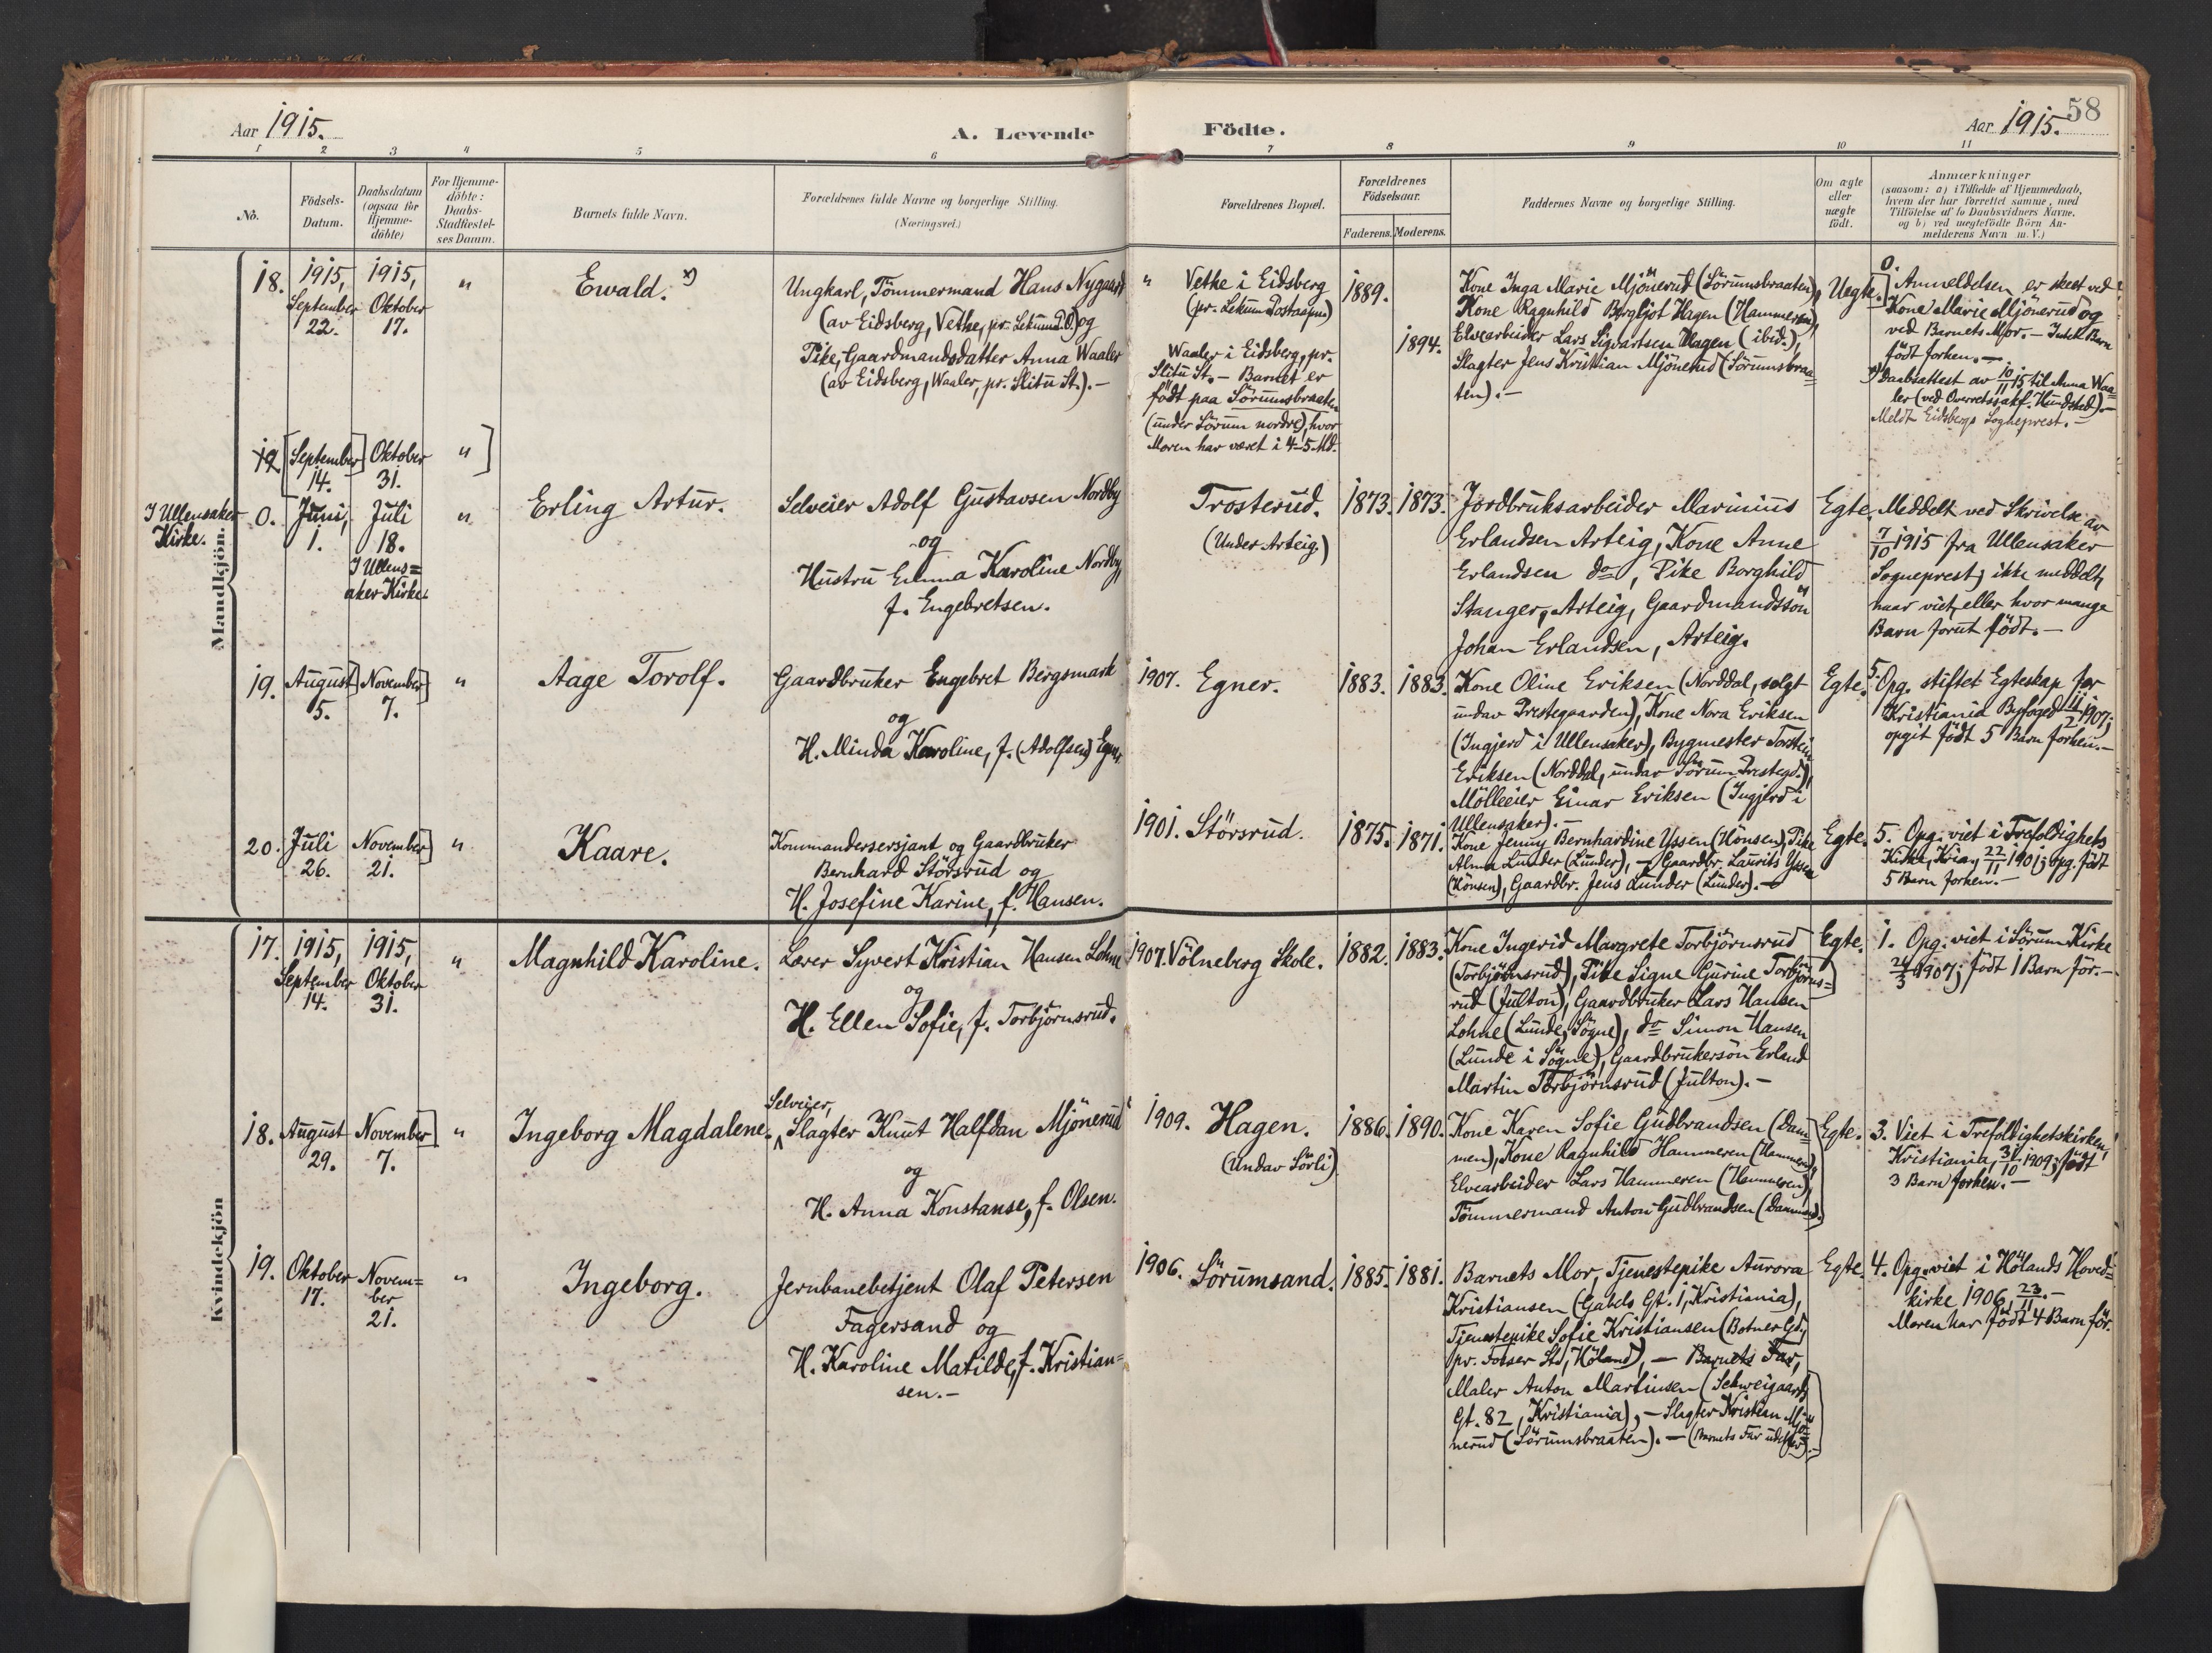 Aar 1915.
A. Levende
Födte.
Aar 1915.
58
1 2 3 4 5 6 7 8 9 10 11
No.
Födsels-
Datum.
Daabsdatum
(ogsaa for
Hjemme-
döbte)
For Hjemme-
döbte:
Daabs-
Stadfæstel-
ses Datum.
Barnets fulde Navn.
Forældrenes fulde Navne og borgerlige Stilling.
(Næringsvei.)
Forældrenes Bopæl.
Forældrenes
Födselsaar.
Faderens. Moderens.
Faddernes Navne og borgerlige Stilling.
Om ægte
eller
uægte
född.
Anmærkninger
(saasom: a) i Tilfælde af Hjemmedaab,
hvem der har forrettet samme, med
Tilföielse af to Daabsvidners Navne.
og b) ved uægtefödte Börn An-
melderens Navn m. V.)
Mandkjön.
18.
1915,
September
22.
1915,
Oktober
17.
"
Ewald. x)
Ungkarl, Tömmermand Hans Nygaard
(av Eidsberg, Vethe, pr. Lekum P.O.) og
Pike, Gaardmandsdatter Anna Waaler
(av Eidsberg, Waaler, pr. Slitu St.). -
" Vethe i Eidsberg
(pr. Lekum Postaapni)
Waaler i Eidsberg, pr.
Slitu St. - Barnet er
födt paa Sörumsbraaten
(under Sörum nordre), hvor
Moren har været i 4-5 Md.
1889.
1894.
Kone Inga Marie Mjönerud (Sörumsbraaten),
Kone Ragnhild Bergljot Hagen (Hammeren),
Elvearbeider Lars Sigvartsen Hagen (ibid.),
Slagter Jens Kristian Mjönerud (Sörumsbraa=
ten). -
Uegte.
0. Anmeldelsen er skeet ved
Kone Marie Mjönerud og
ved Barnets Mor. - Intet Barn
födt forhen. -
x) Daabsattest av 10/11 15 til Anna Waa=
ler (ved Overretssakf. Hundsted). -
Meldt Eidsbergs Sogneprest. -
19. [September] Oktober " ]
14. 31.
I Ullensaker
Kirke.
0.
Juni,
1.
Juli
18.
I Ullens=
aker Kirke.
"
Erling Artur.
Selveier Adolf Gustavsen Nordby
og
Hustru Emma Karoline Nordby,
f. Engebretsen.
Trosterud.
(Under Arteig.)
1873. 1873.
Jordbruksarbeider Marinius
Erlandsen Arteig, Kone Anne
Erlandsen do, Pike Borghild
Stanger, Arteig, Gaardmandssön
Johan Erlandsen, Arteig.
Egte.
Meddelt ved Skrivelse av
7/10 1915 fra Ullensaker
Sogneprest; ikke meddelt,
naar viet, eller hvor mange
Barn forut födt. -
19.
August
5.
November
7.
"
Aage Torolf.
Gaardbruker Engebret Bergsmark
og
H. Minda Karoline, f. (Adolfsen) Egner
1907. Egner.
1883. 1883.
Kone Oline Eriksen (Norddal, solgt
undav Prestegaarden), Kone Nora Eriksen
(Ingjerd i Ullensaker), Bygmester Torstein
Eriksen (Norddal, undav Sörum Prestegd.),
Mölleeier Einar Eriksen (Ingjerd i
Ullensaker). -
Egte.
5. Opg. stiftet Egteskap for
Kristiania Byfoged 11/2 1907;
opgit födt 5 Barn forhen. -
20.
Juli
26.
November
21.
"
Kaare.
Kommandersersjant og Gaardbruker
Bernhard Störsrud og
H. Josefine Karine, f. Hansen.
1901. Störsrud.
1875. 1871.
Kone Jenny Bernhardine Yssen (Hönsen), Pike
Alma Lunder (Lunder), - Gaardbr. Laurits Yssen
(Hönsen), Gaardbr. Jens Lunder (Lunder). -
Egte.
5. Opg. viet i Trefoldigheds
Kirke, Kria, 22/11 1901; opg. födt
5 Barn forhen. -
Kvindekjön
17.
1915,
September
14.
1915,
Oktober
31.
"
Magnhild Karoline.
Lærer Syvert Kristian Hansen Lohne
og
H. Ellen Sofie, f. Torbjörnsrud.
1907. Völneberg Skole.
1882. 1883.
Kone Ingerid Margrete Torbjörnsrud
(Torbjörnsrud), Pike Signe Gurine Torbjörns=
rud (Julton), Gaardbruker Lars Hansen
Lohne (Lunde, Sögne), do Simon Hansen
(Lunde i Sögne), Gaardbrukersön Erland
Martin Torbjörnsrud (Julton). -
Egte.
1. Opg. viet i Sörum Kirke
24/3 1907; födt 1 Barn för. -
18.
August
29.
November
7.
"
Ingeborg Magdalene.
Selveier,
Slagter Knut Halfdan Mjönerud
og
H. Anna Konstanse, f. Olsen.
1909. Hagen.
(Undav Sörli).
1886. 1890.
Kone Karen Sofie Gudbrandsen (Dam=
men), Kone Ragnhild Hammeren (Hammeren),
Elvearbeider Lars Hammeren (Hammeren),
Tömmermand Anton Gudbrandsen (Dammen).
Egte.
3. Viet i Trefoldighetskirken,
Kristiania, 31/10 1909; födt
3 Barn forhen. -
19.
Oktober
17.
Novem=
ber
21.
"
Ingeborg.
Jernbanebetjent Olaf Petersen
Fagersand og
H. Karoline Matilde, f. Kristian=
sen. -
1906. Sörumsand.
1885. 1881.
Barnets Mor, Tjenestepike Aurora
Kristiansen (Gabels Gt. 1, Kristiania),
Tjenestepike Sofie Kristiansen (Botner Gd.,
pr. Fosser St., Höland), - Barnets Far,
Maler Anton Martinsen (Schweigaards
Gt. 82, Kristiania), - Slagter Kristian Mjö=
nerud (Sörumsbraaten). - (Barnets Far
Egte.
4. Opg. viet i Hölands Hoved=
kirke 1906, 23/11. -
Moren har födt 4 Barn för.